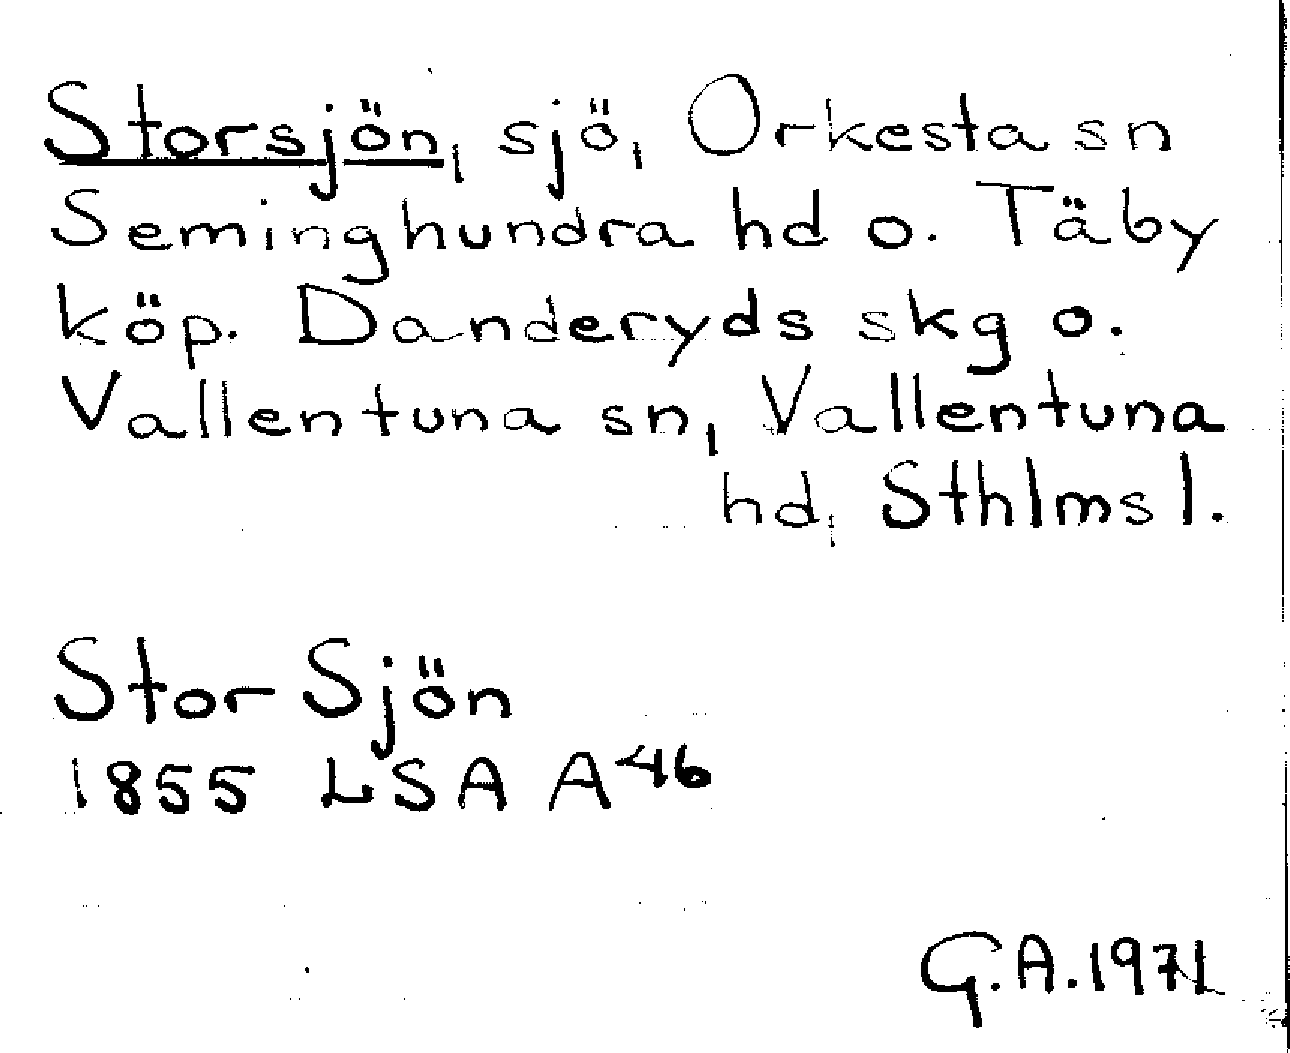 Storsjön, sjö, Orkesta sn
Seminghundra hd o. Täby
köp. Danderyds skg o.
Vallentuna sn, Vallentuna
hd, Sthlms l.
Stor Sjön
1855 LSA A46
G.A.1971